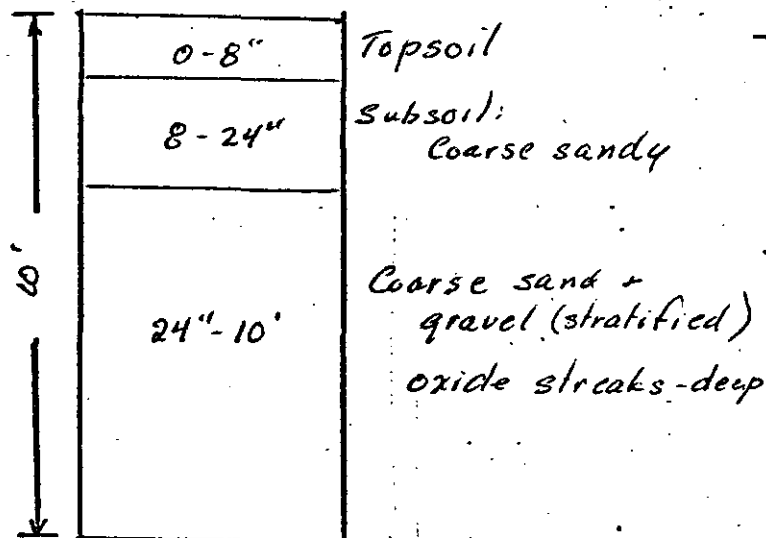 0-8" Topsoil
8-24" Subsoil:
Coarse sandy
10'
24"-10' Coarse sand +
gravel (stratified)
oxide streaks-deep